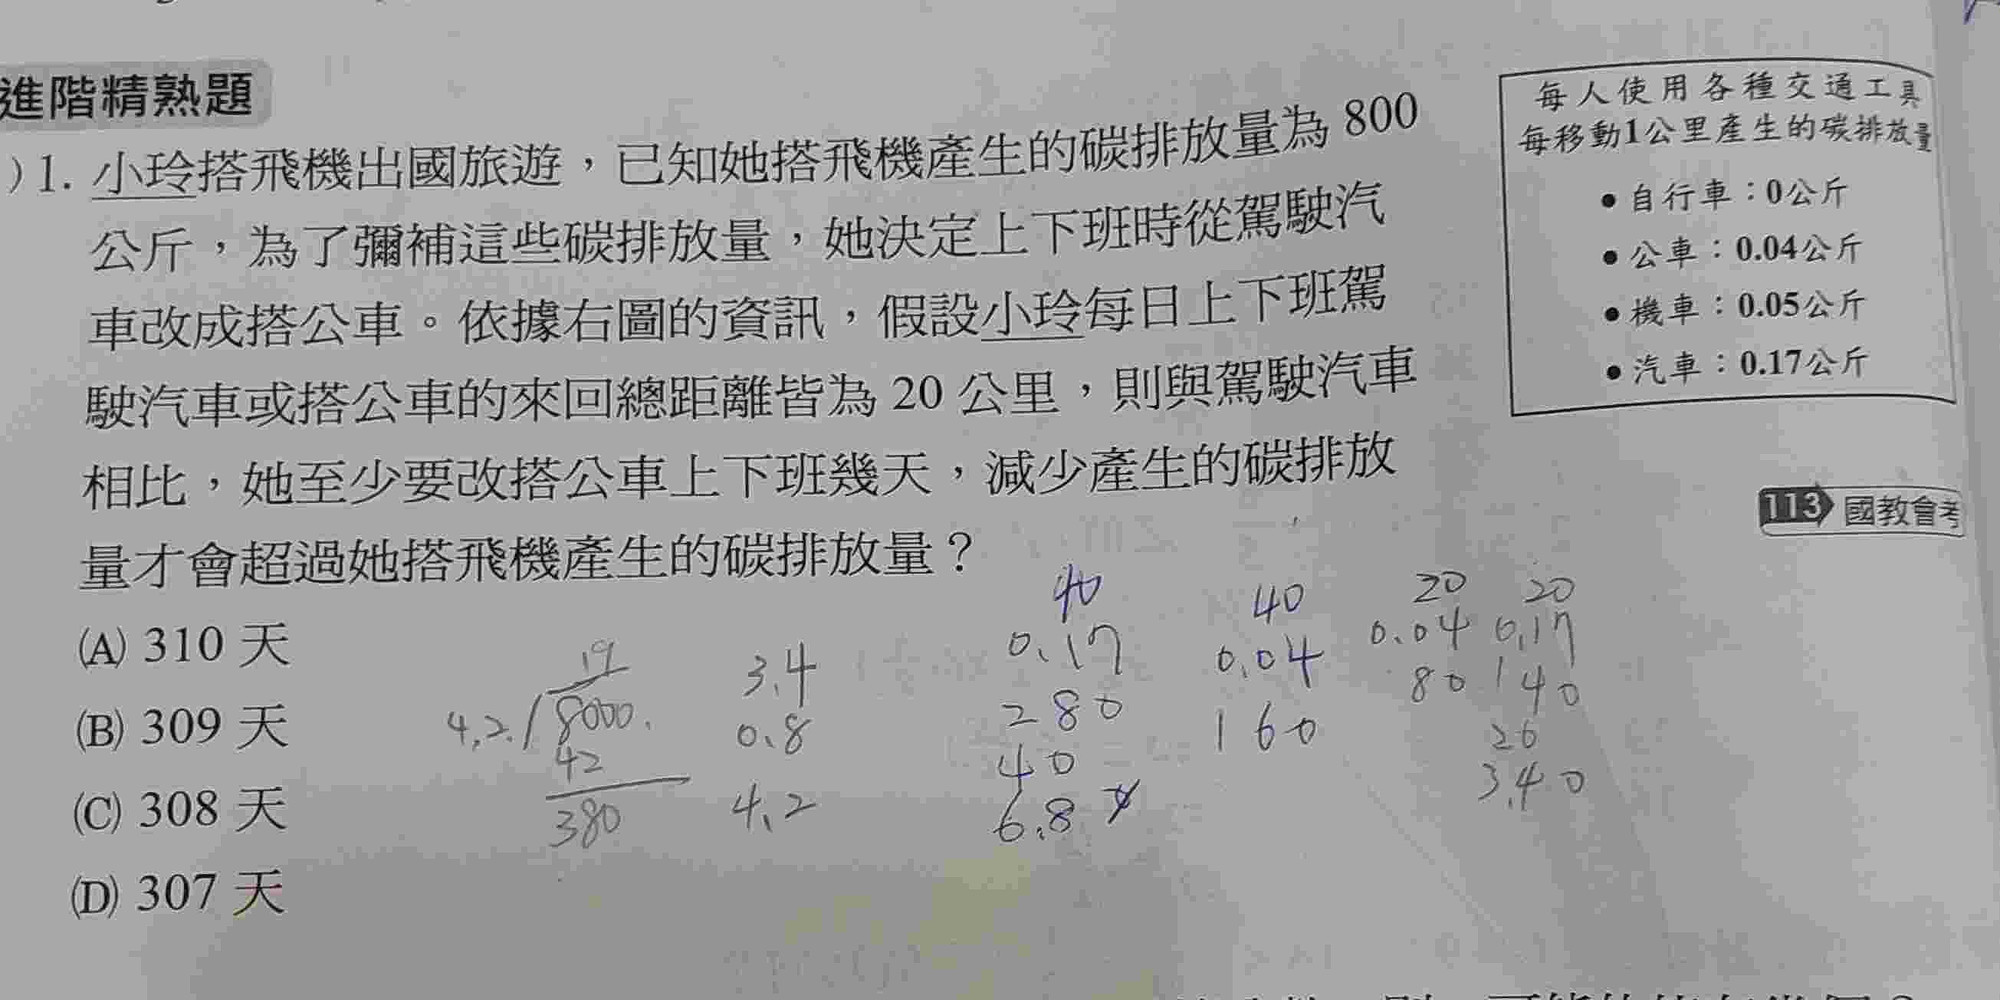 進階精熟題
)1. 小玲搭飛機出國旅遊，已知她搭飛機產生的碳排放量為 800
公斤，為了彌補這些碳排放量，她決定上下班時從駕駛汽
車改成搭公車。依據右圖的資訊，假設小玲每日上下班駕
駛汽車或搭公車的來回總距離皆為 20 公里，則與駕駛汽車
相比，她至少要改搭公車上下班幾天，減少產生的碳排放
量才會超過她搭飛機產生的碳排放量？
(A) 310 天
(B) 309 天
(C) 308 天
(D) 307 天
每人使用各種交通工具
每移動1公里產生的碳排放量
•自行車：0公斤
•公車：0.04公斤
•機車：0.05公斤
•汽車：0.17公斤
113 國教會考
19
4.2.
8000.
42
380
3.4
0.8
4.2
40
0.17
280
40
6.8
40
0.04
160
20
0.04
80
20
0.17
140
20
3.40